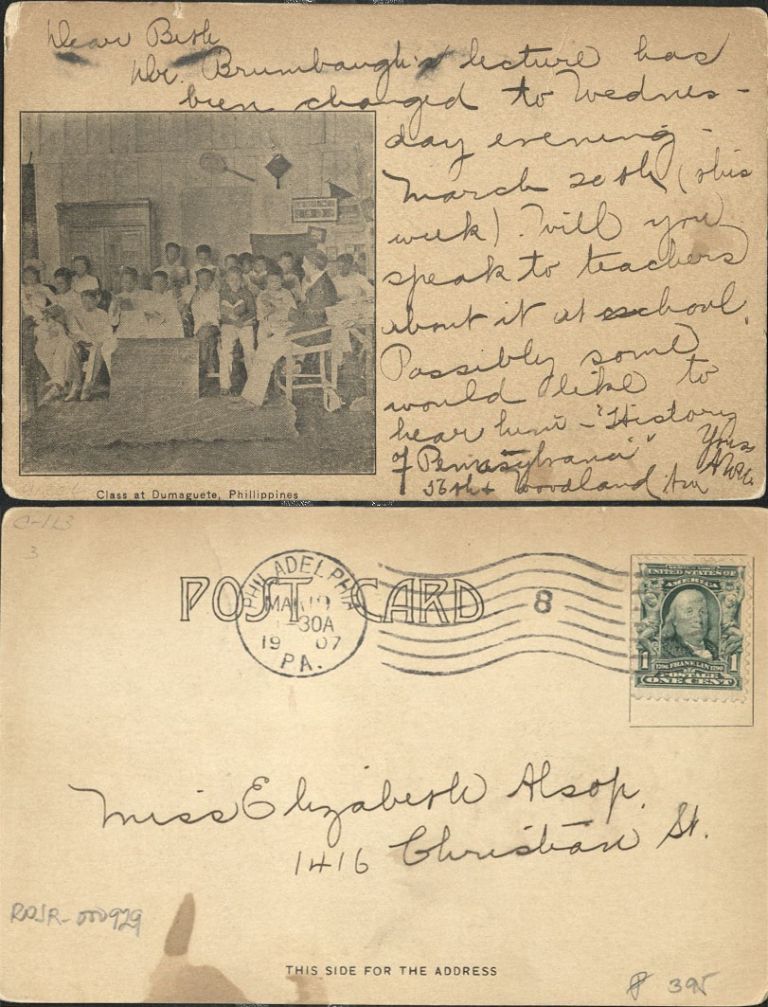 Dear Beth
Dr. Brumbaugh's lecture has
been changed to Wednes-
day evening -
March 20th (this
week). Will you
speak to teachers
about it at school.
Possibly some
would like to
hear him - "History
of Pennsylvania"
Yours
56th & Woodland Ave
Class at Dumaguete, Phillippines
C-113
3
POST CARD
PHILADELPHIA
MAR 19
30A
19 07
PA.
8
UNITED STATES OF
AMERICA
1 FRANKLIN 1
POSTAGE
ONE CENT
Miss Elizabeth Alsop,
1416 Christian St.
THIS SIDE FOR THE ADDRESS
395